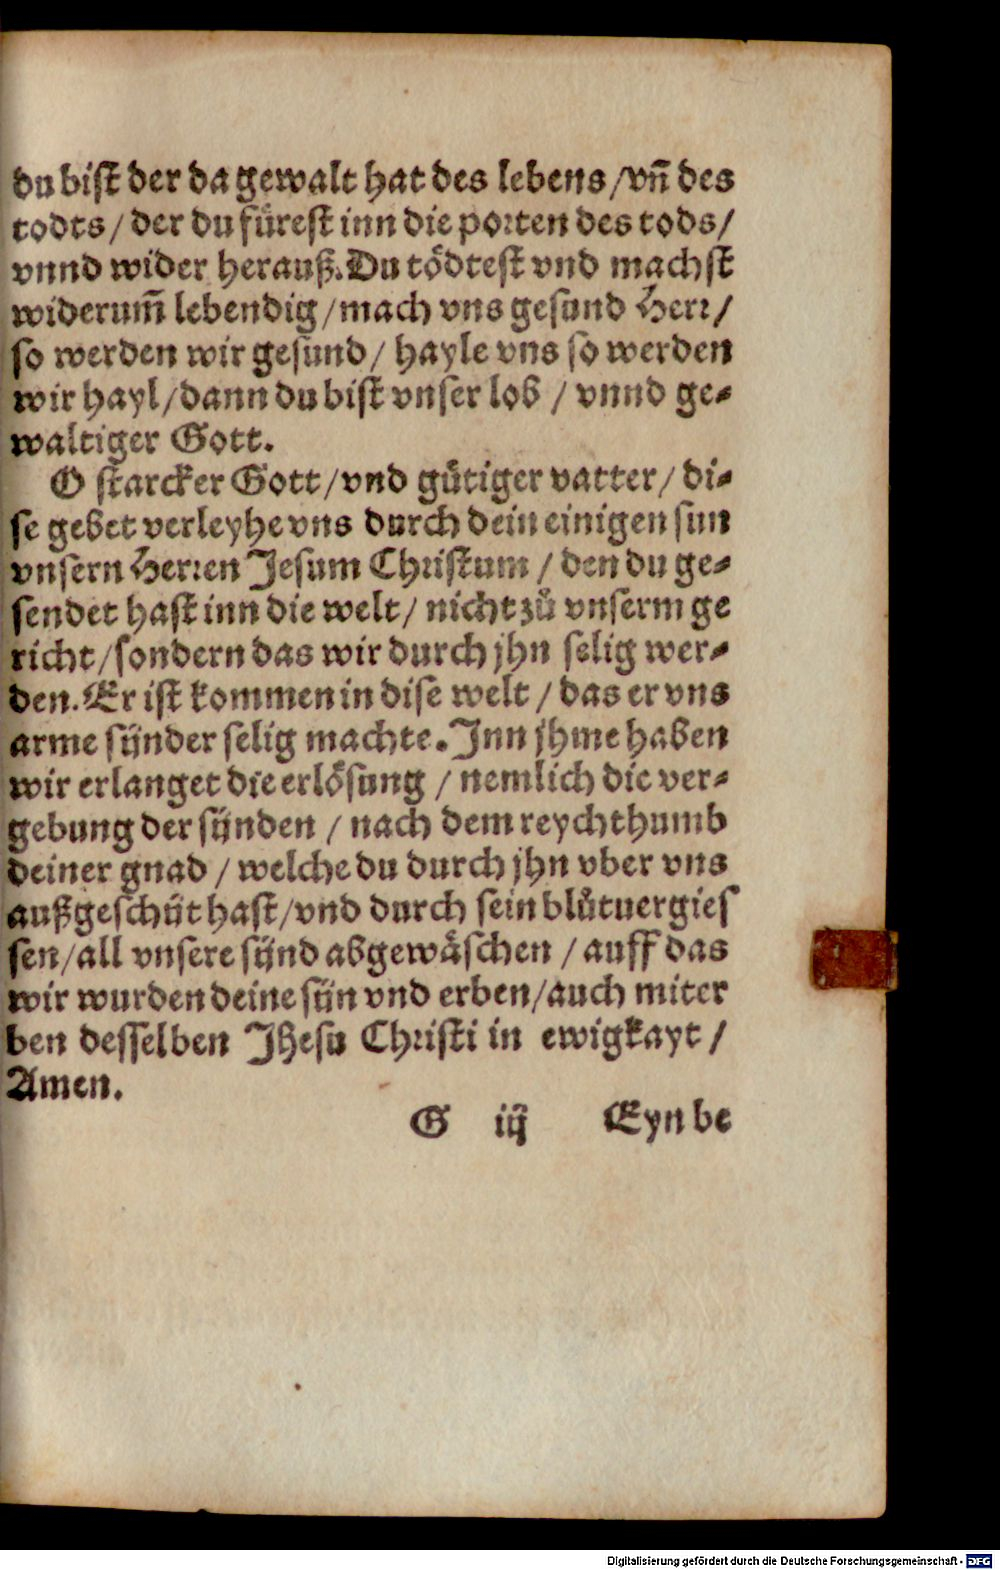 du bist der da gewalt hat des lebens / vn̄ des
todts / der du fürest inn die porten des tods /
vnnd wider herauß. Du tödtest vnd machst
widerum̄ lebendig / mach vns gesund Herr /
so werden wir gesund / hayle vns so werden
wir hayl / dann du bist vnser lob / vnnd ge-
waltiger Gott.
O starcker Gott / vnd gütiger vatter / di-
se gebet verleyhe vns durch dein einigen sun
vnsern Herren Jesum Christum / den du ge-
sendet hast inn die welt / nicht zů vnserm ge
richt / sondern das wir durch jhn selig wer-
den. Er ist kommen in dise welt / das er vns
arme sünder selig machte. Inn jhme haben
wir erlanget die erlösung / nemlich die ver-
gebung der sünden / nach dem reychthumb
deiner gnad / welche du durch jhn vber vns
außgeschüt hast / vnd durch sein blůtuergies
sen / all vnsere sünd abgewäschen / auff das
wir wurden deine sün vnd erben / auch miter
ben desselben Jhesu Christi in ewigkayt /
Amen.
G iij Eyn be
Digitalisierung gefördert durch die Deutsche Forschungsgemeinschaft - DFG